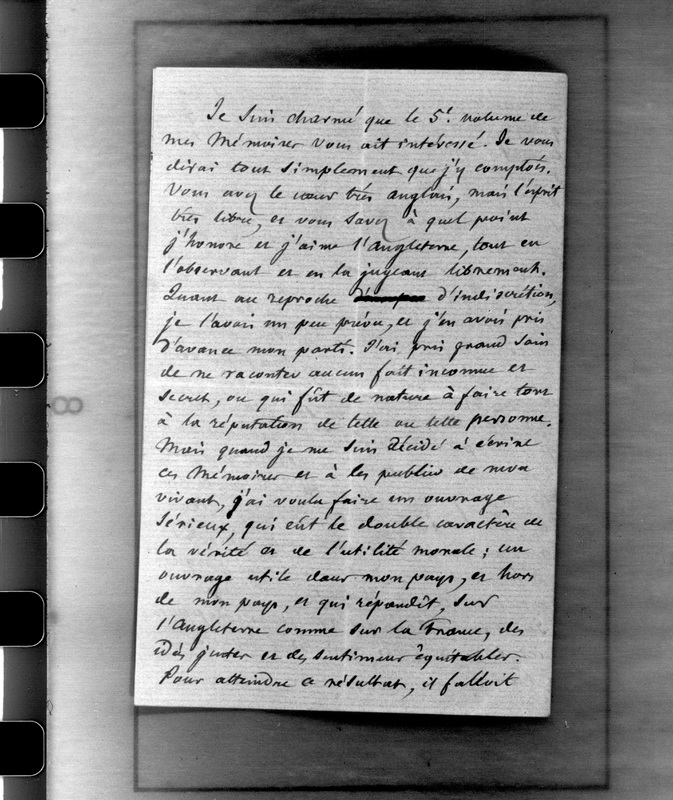 Je suis charmé que le 5e. volume de
mes Mémoires vous ait intéressé. Je vous
dirai tout simplement que j'y comptois.
Vous avez le cœur très anglais, mais l'esprit
très libre, et vous savez à quel point
j'honore et j'aime l'Angleterre, tout en
l'observant et en la jugeant librement.
Quant au reproche d'indiscrétion,
je l'avois un peu prévu, et j'en avois pris
d'avance mon parti. J'ai pris grand soin
de ne raconter aucun fait inconnu et
secret, ou qui fût de nature à faire tort
à la réputation de telle ou telle personne.
Mais quand je me suis décidé à écrire
ces Mémoires et à les publier de mon
vivant, j'ai voulu faire un ouvrage
sérieux, qui eût le double caractère de
la vérité et de l'utilité morale ; un
ouvrage utile dans mon pays, et hors
de mon pays, et qui répandît, sur
l'Angleterre comme sur la France, des
idées justes et des sentimens équitables.
Pour atteindre ce résultat, il falloit